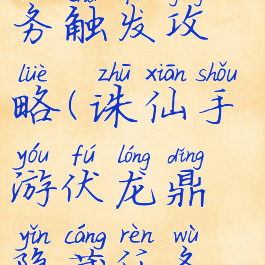 务触发攻
lüè zhū xiān shǒu
略(诛仙手
yóu fú lóng dǐng
游伏龙鼎
yǐn cáng rèn wù
隐藏任务